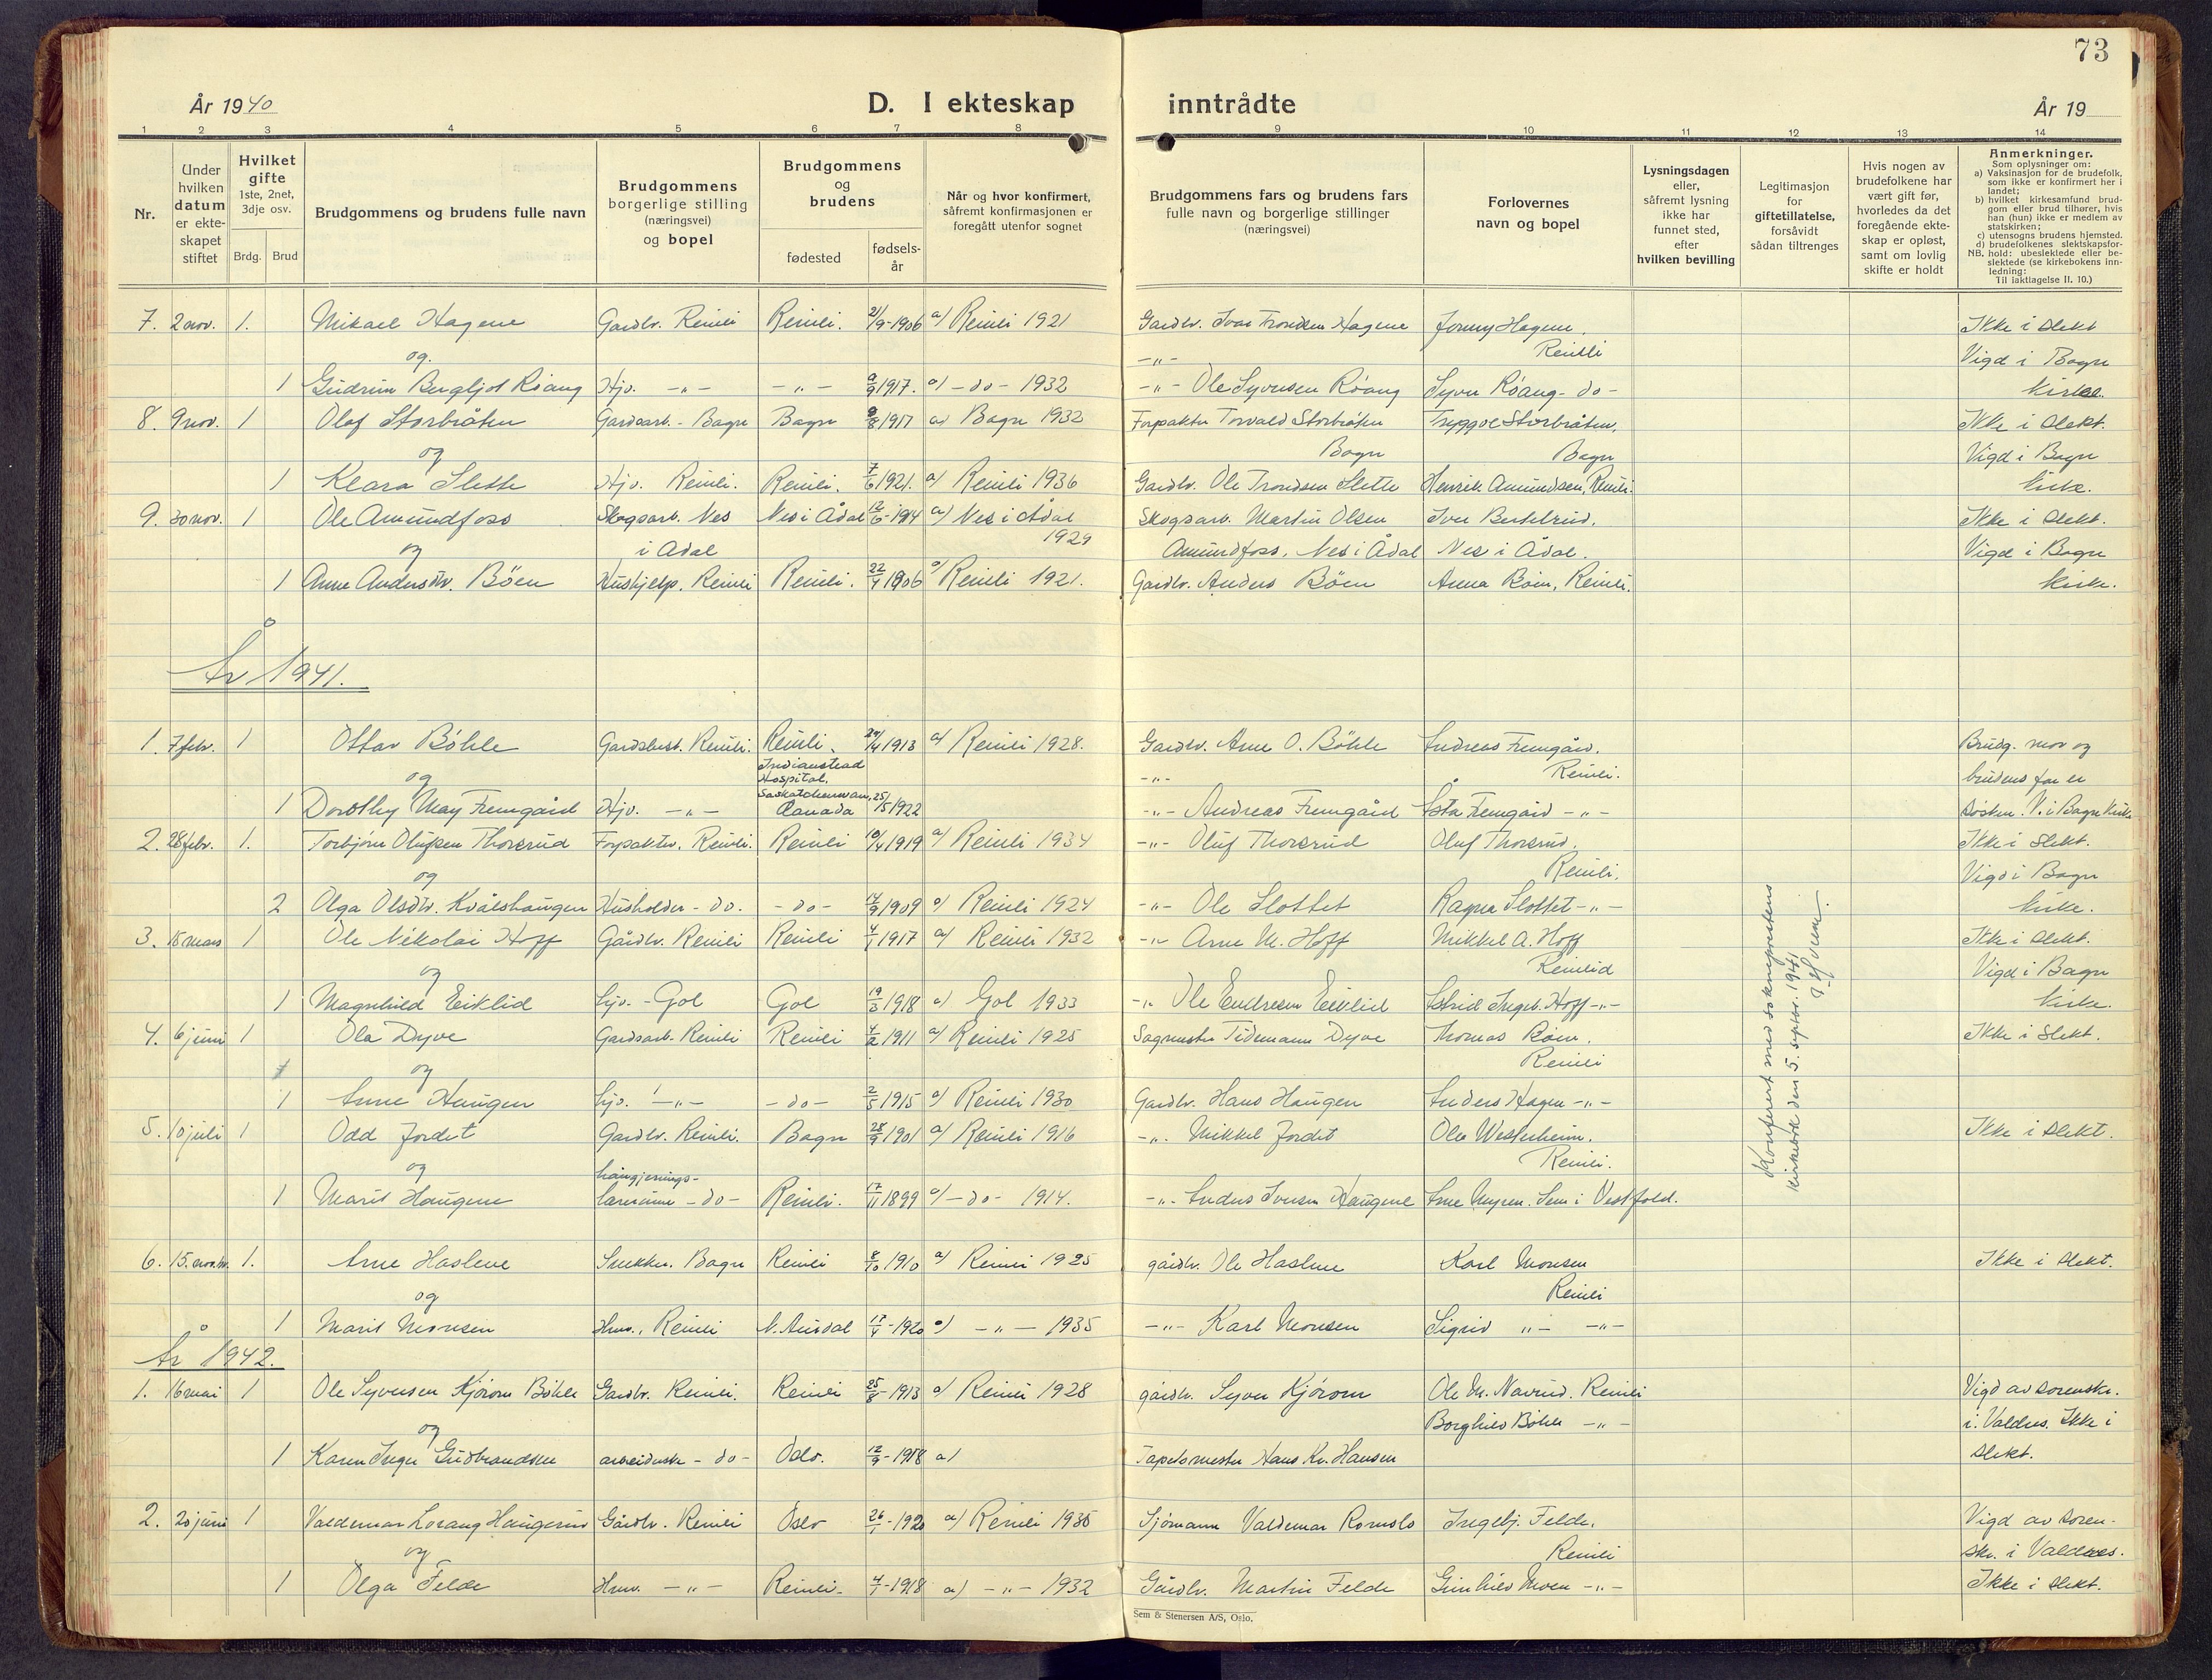 73
År 1940
D. I ekteskap inntrådte
År 19
1 2 3 4 5 6 7 8 9 10 11 12 13 14
Nr.
Under hvilken datum er ekte-skapet stiftet
Hvilket gifte 1ste, 2net, 3dje osv.
Brdg. Brud
Brudgommens og brudens fulle navn
Brudgommens borgerlige stilling (næringsvei) og bopel
Brudgommens og brudens
fødested
fødsels-år
Når og hvor konfirmert, såfremt konfirmasjonen er foregått utenfor sognet
Brudgommens fars og brudens fars fulle navn og borgerlige stillinger (næringsvei)
Forlovernes navn og bopel
Lysningsdagen eller, såfremt lysning ikke har funnet sted, efter hvilken bevilling
Legitimasjon for giftetillatelse, forsåvidt sådan tiltrenges
Hvis nogen av brudefolkene har vært gift før, hvorledes da det foregående ekte-skap er opløst, samt om lovlig skifte er holdt
Anmerkninger.
Som oplysninger om:
a) Vaksinasjon for de brudefolk, som ikke er konfirmert her i landet;
b) hvilket kirkesamfund brud-gom eller brud tilhører, hvis han (hun) ikke er medlem av statskirken;
c) utensogns brudens hjemsted.
d) brudefolkenes slektskapsfor-hold: ubeslektede eller be-slektede (se kirkebokens inn-ledning:
NB. Til iakttagelse II. 10.)
7. 2 nov. 1. Mikael Hagene Gardbr. Reinli Reinli. 21/9-1906 a) Reinli 1921 Gardbr. Ivar Trondsen Hagene Jonny Hagene. Ikke i slekt
og -"- Reinli Vigd i Bagn
1 Gudrun Bergljot Röang Hjv. -"- -"- 9/9 1917. a) -do- 1932 -"- Ole Syversen Röang Syver Röang -do- kirke.
8. 9 nov. 1 Olaf Storbråten Gardsarb. - Bagn Bagn 9/8 1917 a) Bagn 1932 Forpakter Torvald Storbråten Tryggve Storbråten, Ikke i slekt.
og Bagn Bagn Vigd i Bagn
1 Klara Slette Hjv. Reinli. Reinli. 7/6 1921. a) Reinli 1936 Gardbr. Ole Trondsen Slette Henrik Amundsen, Reinli. kirke.
9. 30 nov. 1 Ole Amundfoss Skogsarb. Nes Nes i Ådal 12/6-1914 a) Nes i Ådal Skogsarb. Martin Olsen Iver Bertelrud. Ikke i slekt.
og i Adal 1929 Amundfoss, Nes i Ådal Nes i Ådal. Vigd i Bagn
1 Anne Andersdtr. Böen Hushjelp. Reinli Reinli. 22/4 1906 a) Reinli 1921. Gardbr. Anders Böen Anna Böen, Reinli. kirke.
År 1941.
1. 7 febr. 1 Ottar Böhle Gardsbest. Reinli. Reinli. 24/4 1913 a) Reinli 1928. Gardbr. Arne O. Böhle Andreas Fremgård. Brudg. mor og
og Indianstead Hospital, -"- Reinli. brudens far er
1 Dorothy May Fremgård Hjv. -"- Saskatchewan, Canada 25/5 1922 -"- Andreas Fremgård Åsta Fremgård -"- søsken. V. i Bagn kirke
2. 28 febr. 1. Torbjørn Olufsen Thorsrud Forpakter. Reinli. Reinli 10/4 1919 a) Reinli 1934 -"- Oluf Thorsrud Oluf Thorsrud. Ikke i slekt.
og Reinli. Vigd i Bagn
2 Olga Olsdtr. Kvålshaugen Husholder -do. -do- 14/9 1909 a) Reinli 1924 -"- Ole Slottet Ragna Slottet -"- kirke.
3. 15 mars 1 Ole Nikolai Hoff Gårdbr. Reinli Reinli 4/1 1917 a) Reinli 1932 -"- Arne M. Hoff Mikkel A. Hoff Ikke i slekt.
og Reinlid Vigd i Bagn
1 Magnhild Eiklid hjv. - Gol Gol 19/3 1918 a) Gol 1933 -"- Ole Endresen Eiklid Astrid Ingeb. Hoff -"- kirke.
4. 6 juni 1 Ola Dyve Gardsarb. Reinli Reinli 4/2 1911 a) Reinli 1925 Sagmester Tidemann Dyve Thomas Böen. Ikke i slekt.
og Reinli
1 Anne Haugen hjv. -"- -do- 2/5 1915 a) Reinli 1930 Gardbr. Hans Haugen Anders Hagen -"-
5. 10 juli 1 Odd Jordet Gardbr. Reinli. Bagn 28/9 1901 a) Reinli 1916 -"- Mikkel Jordet Ola Westerheim. Ikke i slekt.
og hångjernings- Reinli.
1 Marit Haugene lærerinne -do- Reinli. 17/11 1899 a) -do- 1914. -"- Anders Iversen Haugene Arne Myren. Sem i Vestfold.
Konferert med sokneprestens
kirkebok den 5. septbr. 1941
6. 15. novbr. 1. Arne Haslene Snekker. Bagn Reinli 8/10 1910 a) Reinli 1925 gårdbr. Ole Haslene Karl Monsen Ikke i slekt.
og Reinli
1 Marit Monsen Hmv., Reinli N. Aurdal 17/4-1920 a) -"- 1935 -"- Karl Monsen Sigrid "- -"-
År 1942.
1. 16 mai 1 Ole Syversen Kjörom Böhle Gardbr. Reinli. Reinli 25/8-1913 a) Reinli 1928 gårdbr. Syver Kjörom Ole M. Navrud. Reinli Vigd av sorenskr.
og Borghild Böhle -"- i. Valdres. Ikke i
1 Karen Inger Gudbrandsen arbeiderske -do- Oslo. 12/9-1918 a) Tapetsermester Hans Kr. Hansen slekt.
2. 20 juni 1 Valdemar Lorang Haugerud Gårdbr. Reinli Oslo 26/1-1920 a) Reinli 1935 Sjömann Valdemar Romslo Ingebj. Felde, Vigd av soren-
og Reinli skr. i Valdres.
1 Olga Felde Hmv. -"- Reinli- 4/1-1918 a) -"- 1932 Gårdbr. Martin Felde Gunhild Moen -"- Ikke i slekt.
Sem & Stenersen A/S, Oslo.